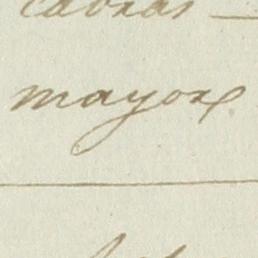 cabras
mayor